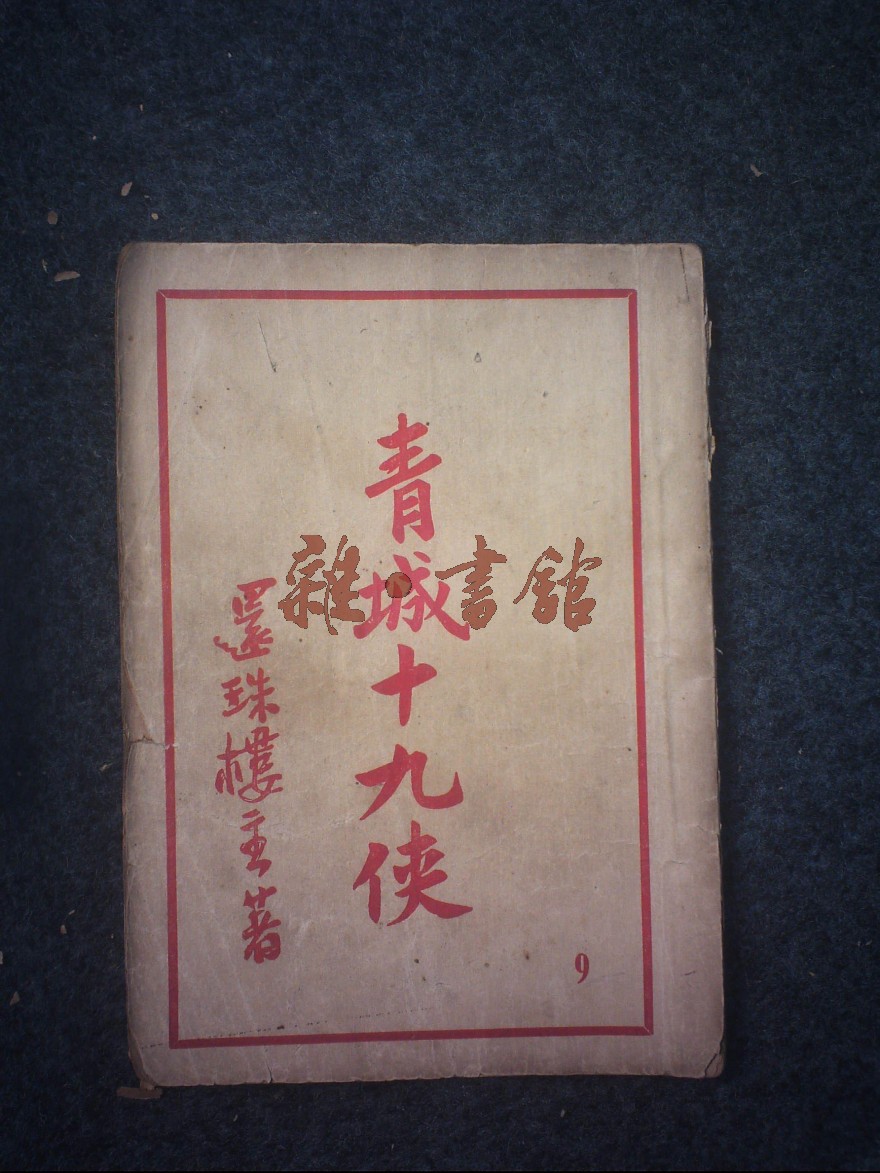 青城十九俠
還珠樓主著
9
雜·書館